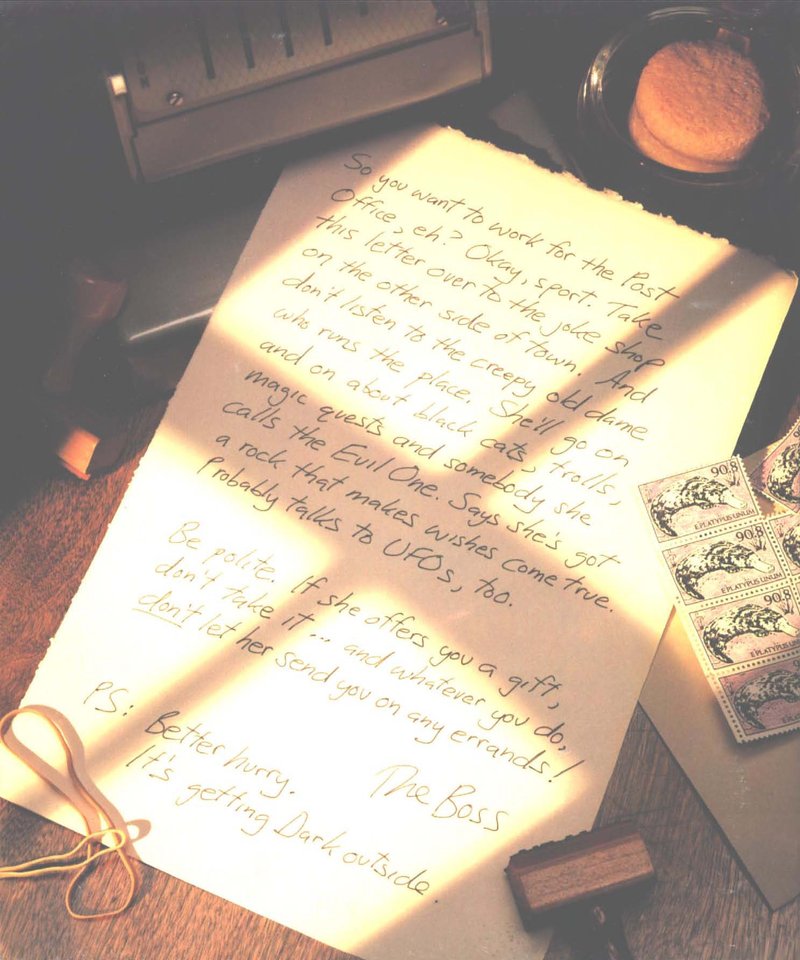 So you want to work for the Post
Office, eh? Okay, sport. Take
this letter over to the joke shop
on the other side of town. And
don't listen to the creepy old dame
who runs the place. She'll go on
and on about black cats, trolls,
magic quests and somebody she
calls the Evil One. Says she's got
a rock that makes wishes come true.
Probably talks to UFOs, too.
Be polite. If she offers you a gift,
don't take it... and whatever you do,
don't let her send you on any errands!
The Boss
PS: Better hurry.
It's getting Dark outside
90.8
E PLATYPUS UNUM
90.8
E PLATYPUS UNUM
90.8
E PLATYPUS UNUM